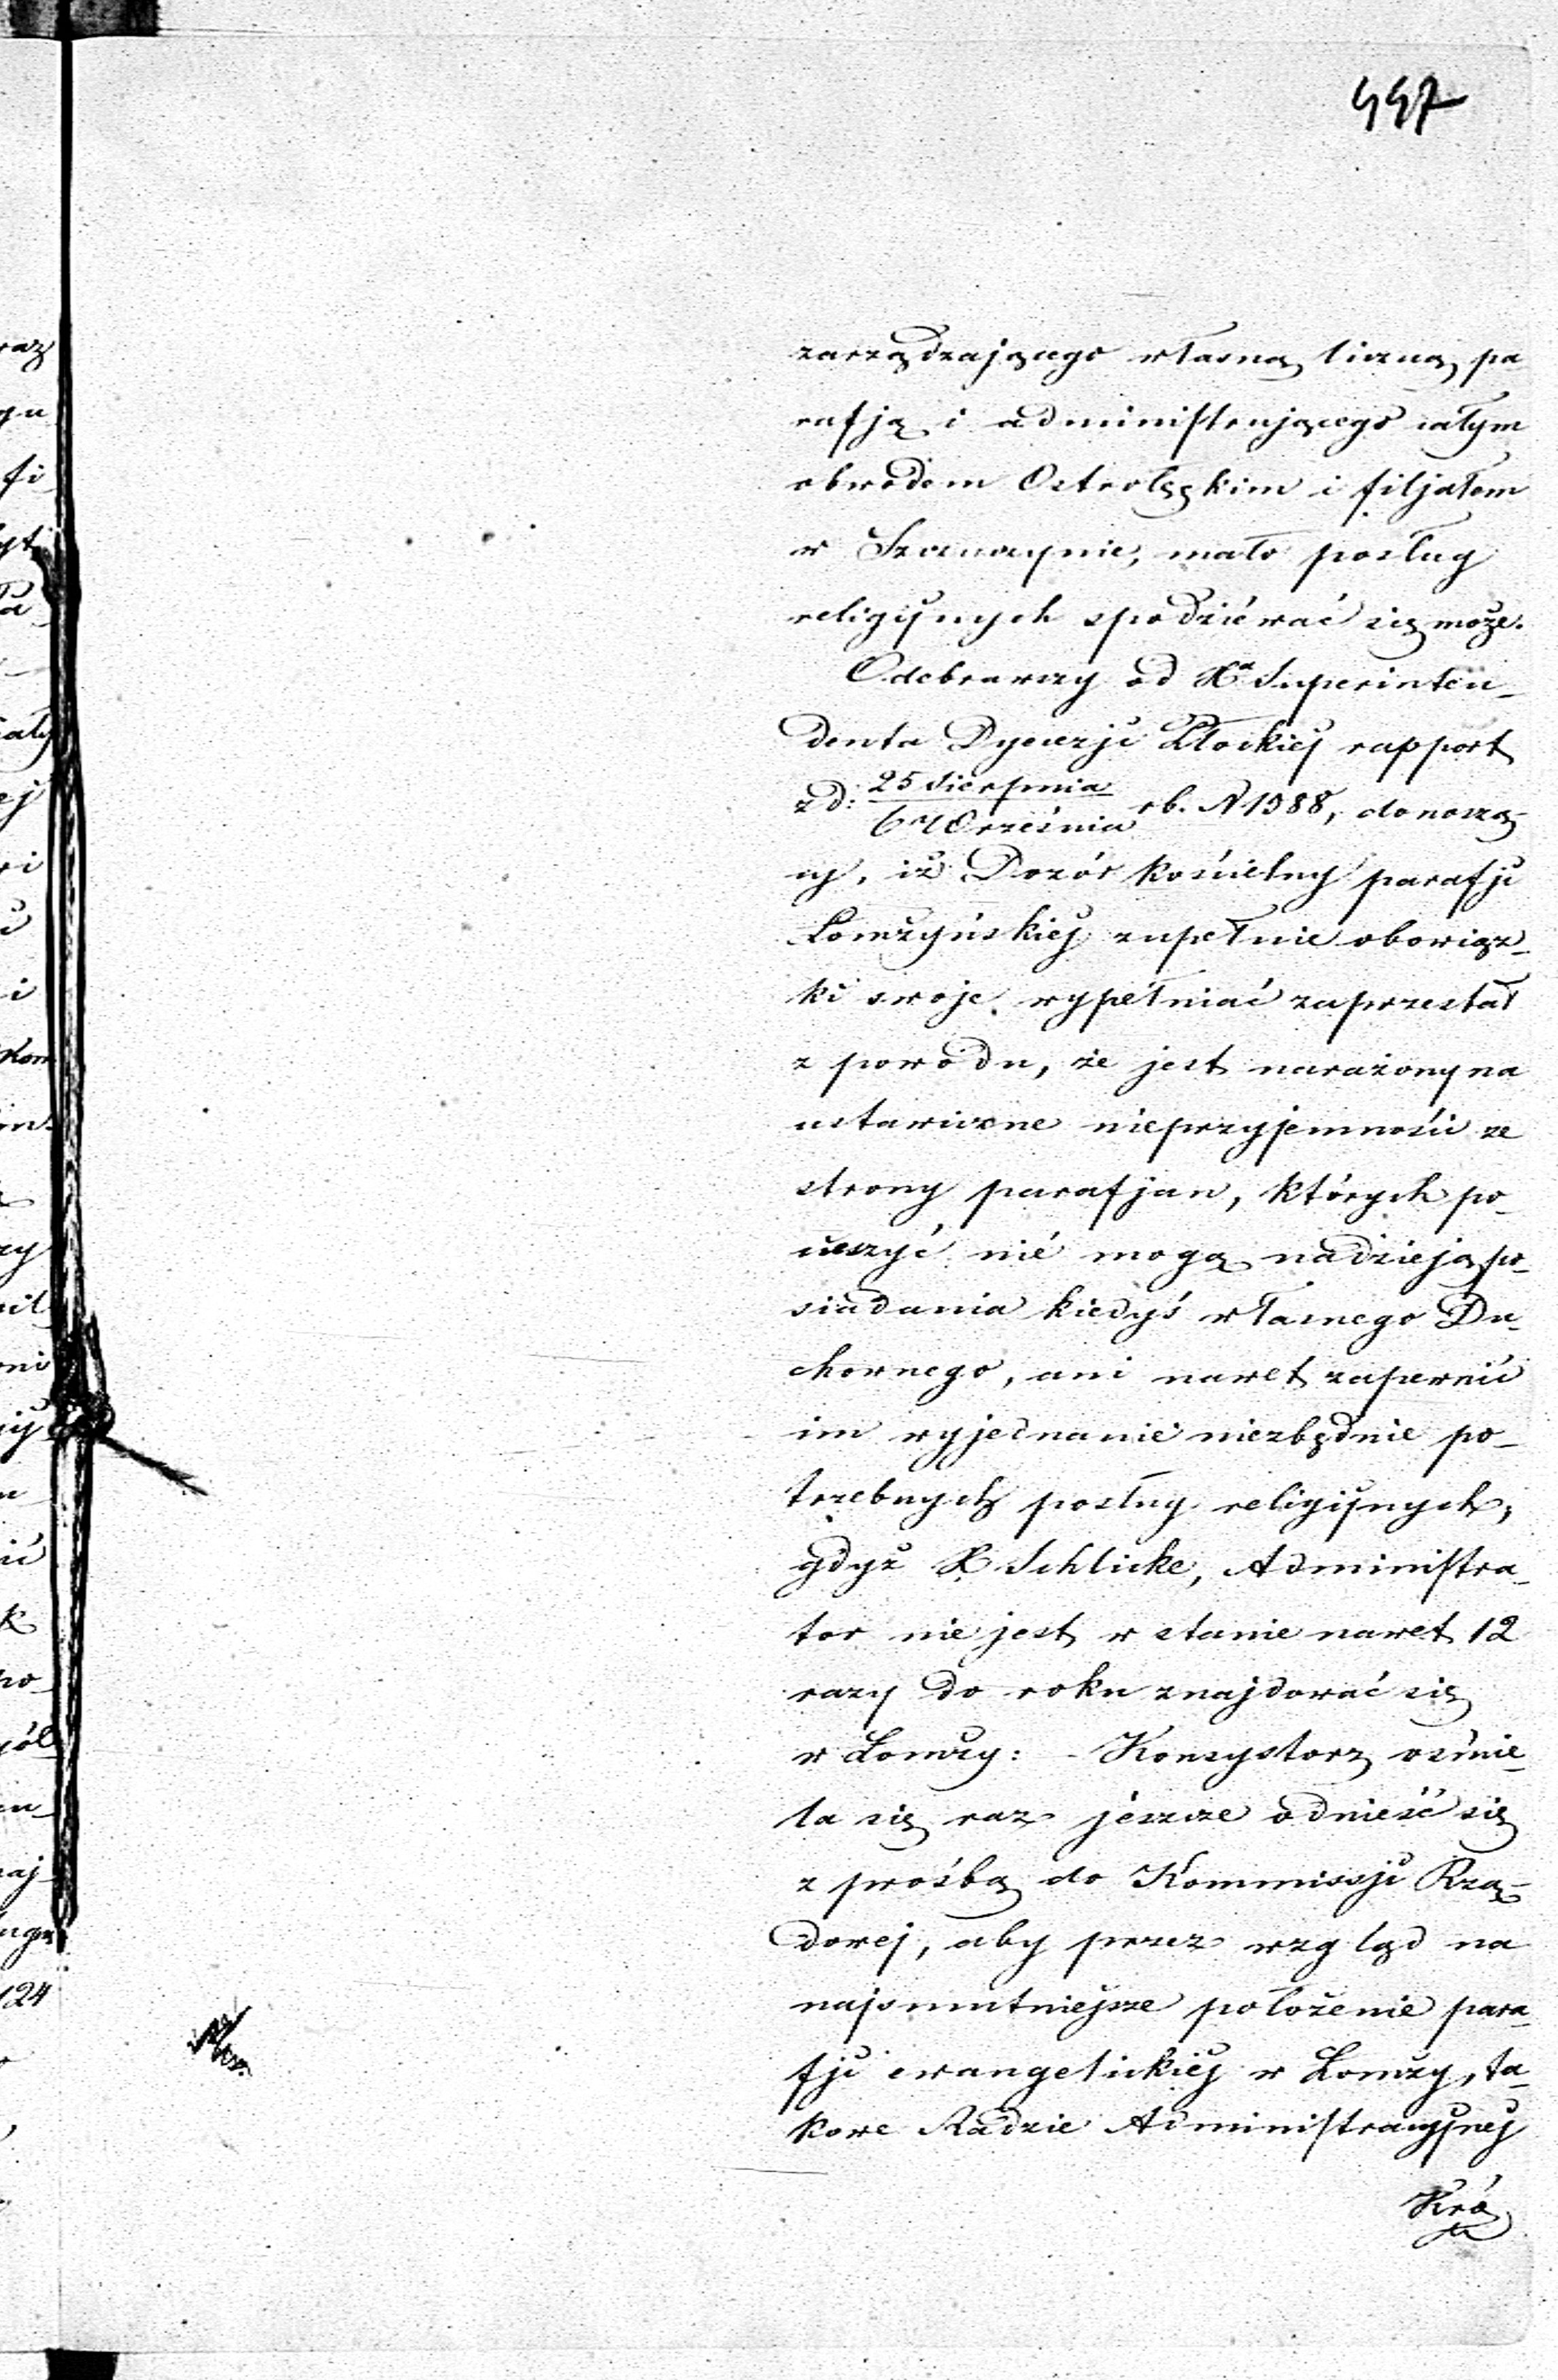 447
zarządzającego własną liczną pa
rafją i administrującego całym
obwodem Ostrołęckim i filjałem
w Szczuczynie, mało posług
religijnych spodziéwać się może.
Odebrawszy od Xa Superinten-
denta Dyecezji Płockiej rapport
z d: 25 Sierpnia / 6 Września rb. N 1988, donoszą-
cy, iż Dozór kościelny parafji
Łomżyńskiej zupełnie obowiąz-
ki swoje wypełniać zaprzestał
z powodu, że jest narażony na
ustawiczne nieprzyjemności ze
strony parafjan, których po-
cieszyć nie mogą nadzieją po-
siadania kiedyś własnego Du-
chownego, ani nawet zapewnić
im wyjednanie niezbędnie po-
trzebnych posług religijnych,
gdyż X. Schlicke, Administra-
tor nie jest w stanie nawet 12
razy do roku znajdować się
w Łomży: - Konsystorz ośmie-
la się raz jeszcze odnieść się
z prośbą do Kommissji Rzą-
dowej, aby przez wzgląd na
najsmutniejsze położenie para-
fji ewangelickiej w Łomży, ta-
kowe Radzie Administracyjnej
Kró
raz
fi
ej
Kom
zy
ni
k
po-
aj
124